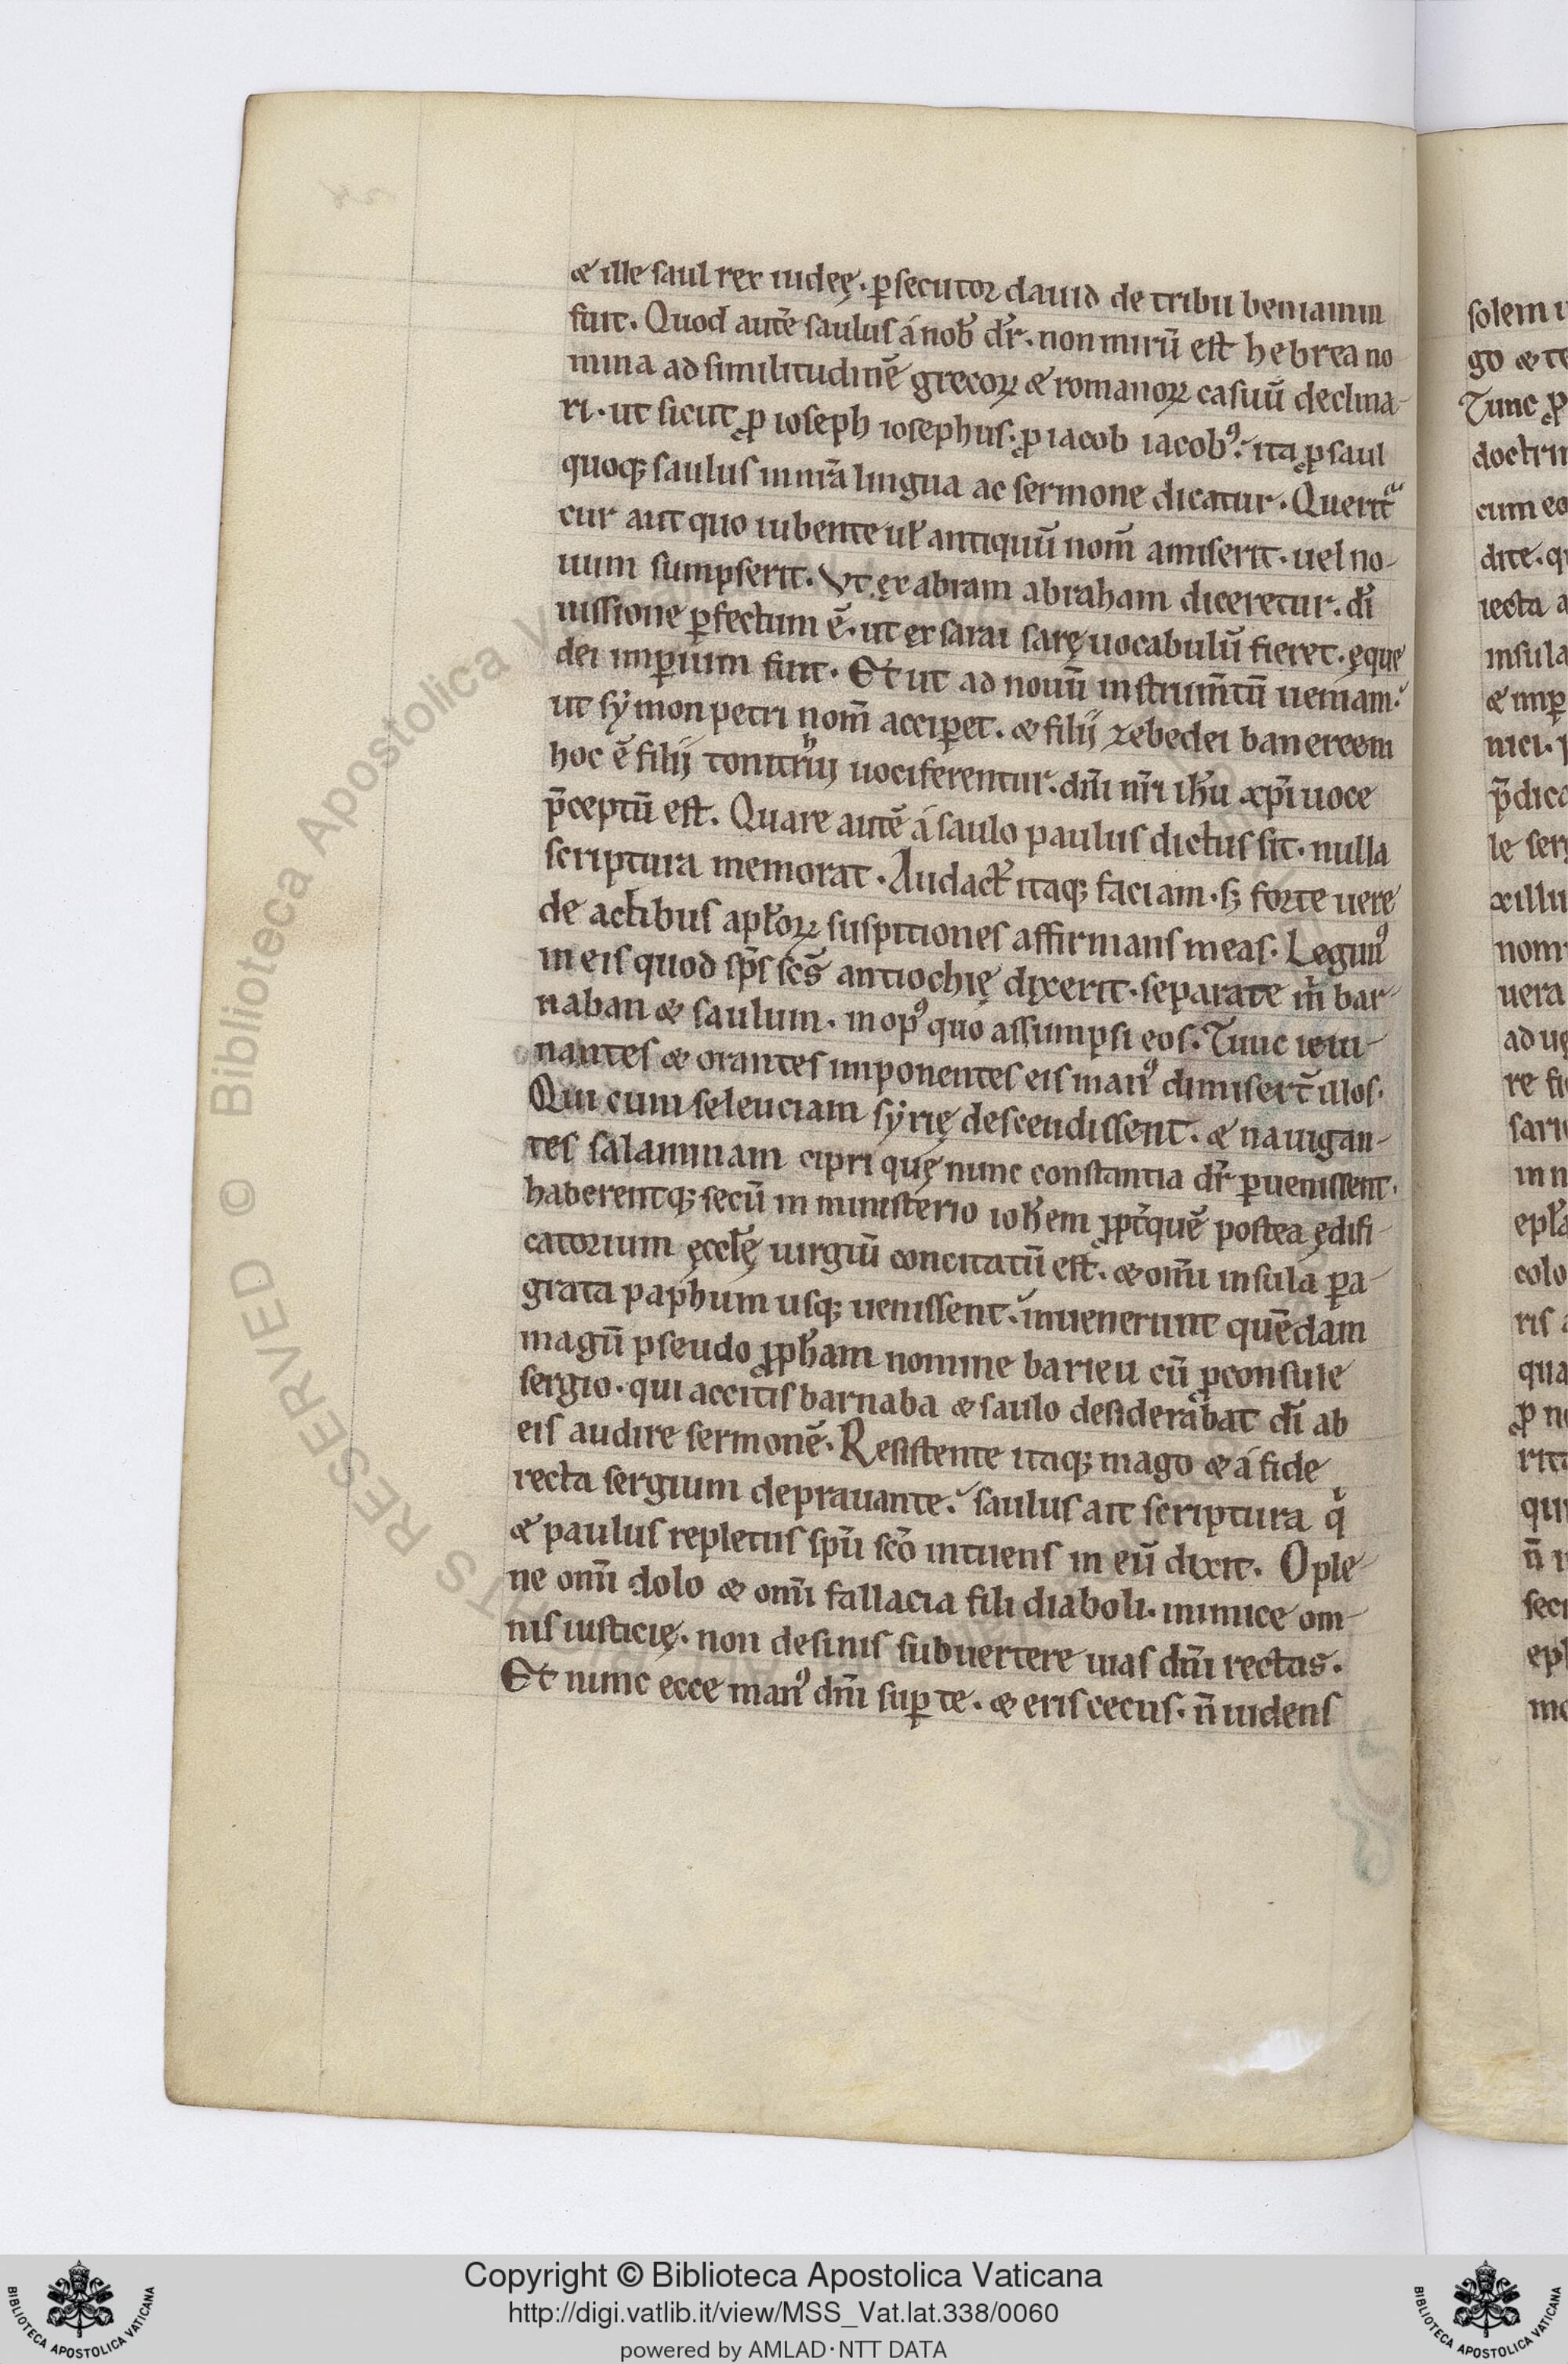 & ille saul rex iudeę. ꝑsecutor dauid de tribu beniamin
fuit. Quod autē saulus á nob̄ dr̄. non mirū est hebrea no
mina ad similitudinē grecoꝝ & romanoꝝ casuū declina-
ri. ut sicut ꝓ ioseph iosephus. ꝓ iacob iacobꝰ. ita ꝓ saul
quoqꝫ saulus in nr̄a lingua ac sermone dicatur. Querit̄
cur aut quo iubente ul̄ antiquū nom̄ amiserit. uel no-
uum sumpserit. Vt ex abram abraham diceretur. dī
iussione ꝑfectum ē. ut ex sarai sarę uocabulū fieret. ęque
dei imꝑium fuit. Et ut ad nouū instrum̄tū ueniam.
ut sẏmon petri nom̄ acciꝑet. & filij zebedei banereem
hoc ē filij tonitrhuj uociferentur. dn̄i nr̄i ih̄u xp̄i uoce
p̄ceptū est. Quare autē á saulo paulus dictus sit. nulla
scriptura memorat. Audact̄ itaqꝫ faciam. sꝫ forte uere
de actibus apl̄oꝝ suspitiones affirmans meas. Legimꝰ
in eis quod sp̄s sc̄s antiochię dixerit. separate m̄ bar-
naban & saulum. in opꝰ quo assumpsi eos. Tunc ieiu-
nantes & orantes imponentes eis manꝰ dimiser̄t illos.
Qui cum seleuciam sẏrię descendissent. & nauigan-
tes salaminam cipri quę nunc constantia dr̄ ꝑuenissent.
haberentqꝫ secū in ministerio ioh̄em ꝓpt̄quē postea ędifi-
catorium ęccl̄ę uirgiū concitatū est. & om̄i insula ꝑa-
grata paphum usqꝫ uenissent. inuenerunt quēdam
magū pseudo ꝓph̄am nomine barieu cū ꝓconsule
sergio. qui accitis barnaba & saulo desiderabat dī ab
eis audire sermonē. Resistente itaqꝫ mago & á fide
recta sergium deprauante. saulus ait scriptura qͥ
& paulus repletus sp̄u sc̄o intuens in eū dixit. O ple-
ne om̄i dolo & om̄i fallacia fili diaboli. inimice om-
nis iusticię. non desinis subuertere uias dn̄i rectas.
Et nunc ecce manꝰ dn̄i suꝑ te. & eris cecus. n̄ uidens
solem
go & te
Tunc ꝓ
doctrin
cum eo
dite. q
iecta a
insula
& imꝑ
nici.
p̄dica
le ser
xillu
nom
uera
ad ue
re fi
sari
in n
epl̄a
colo
ris a
qua
ꝓ n
rita
qui
n̄
secu
eph
mo
Copyright © Biblioteca Apostolica Vaticana
http://digi.vatlib.it/view/MSS_Vat.lat.338/0060
powered by AMLAD·NTT DATA
BIBLIOTECA APOSTOLICA VATICANA
BIBLIOTECA APOSTOLICA VATICANA